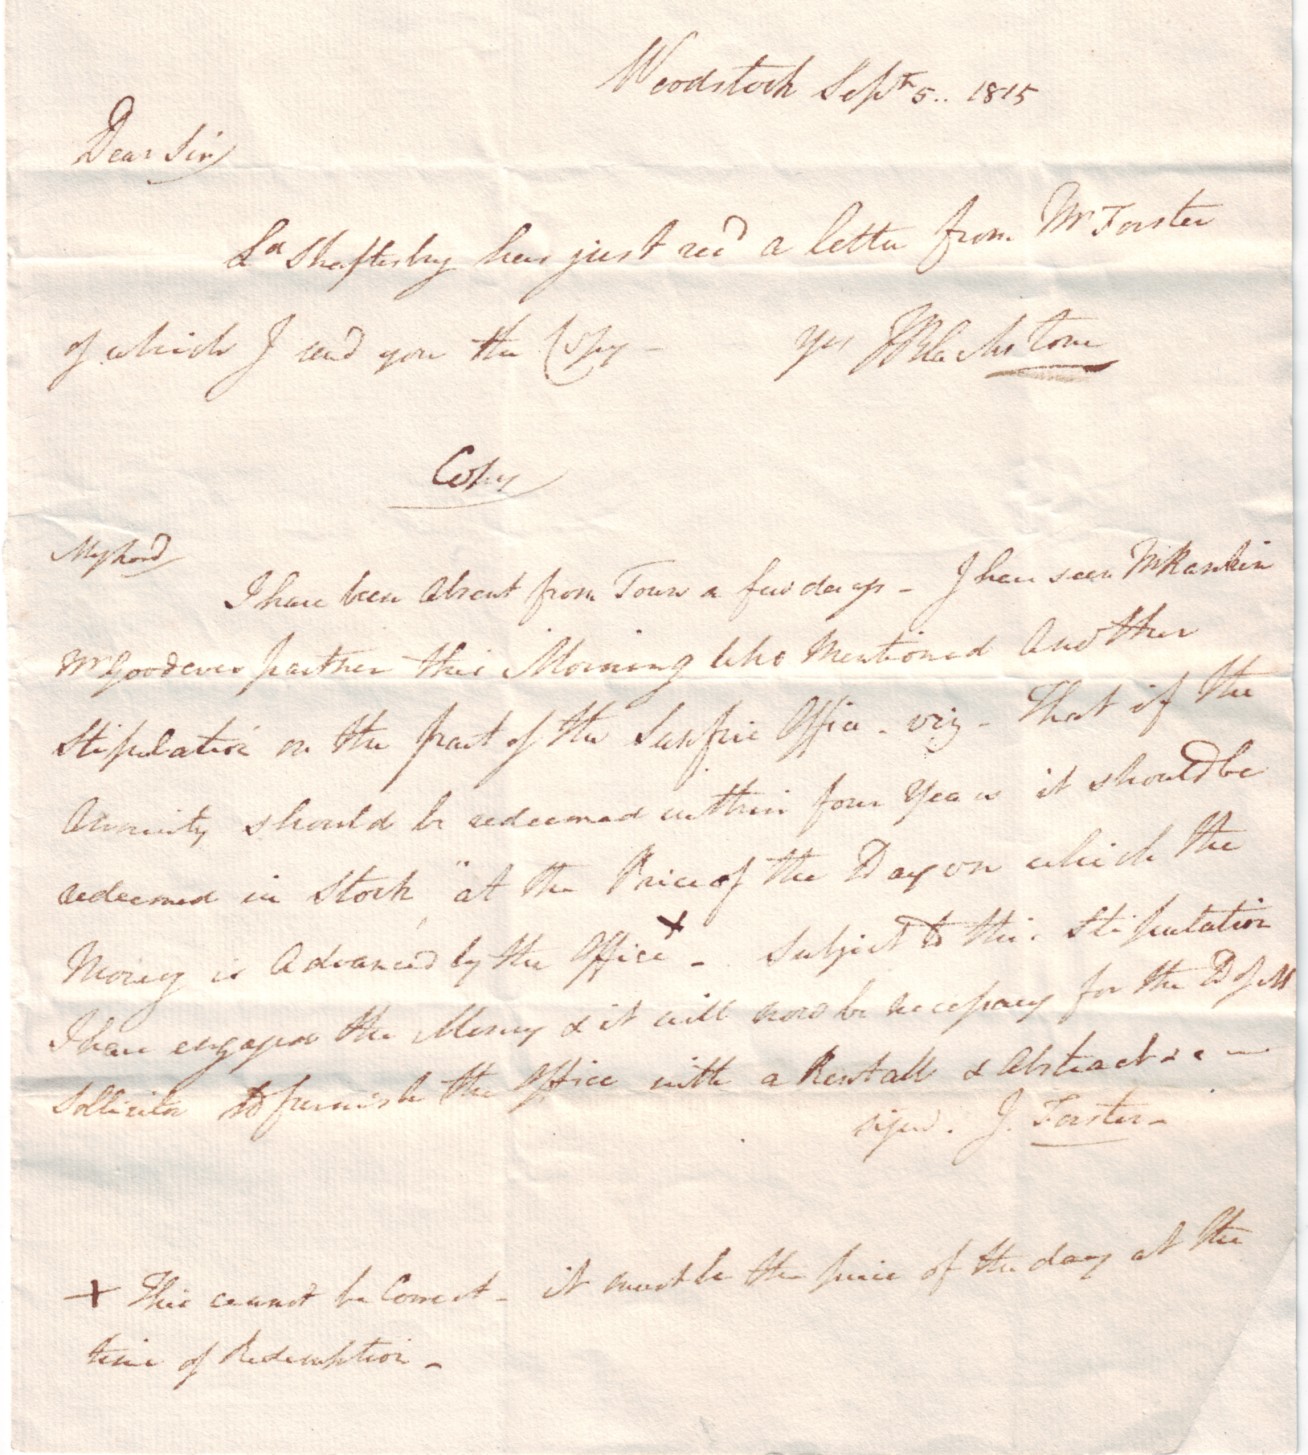 Woodstock Sept 5.. 1815
Dear Sir
Ld Shaftesbury has just recd a letter from Mr Forster
of which I send you the Copy - Yrs JBlackstone
Copy
My Lord
I have been Absent from Town a few days - I have seen Mr Rankin
Mr Goodeves partner this Morning who Mentioned Another
Stipulation on the part of the Office - viz - That if the
Annuity should be redeemed within four Years it should be
redeemed in Stock "at the Price of the Day on which the
Money is Advanced by the Office + - Subject to this Stipulation
I have engaged the Money & it will now be necessary for the D of M
Sollicitor to furnish the Office with a Rentall & Abstract &c -
signed. J. Forster -
+ This cannot be Correct - it must be the price of the day at the
time of Redemption -